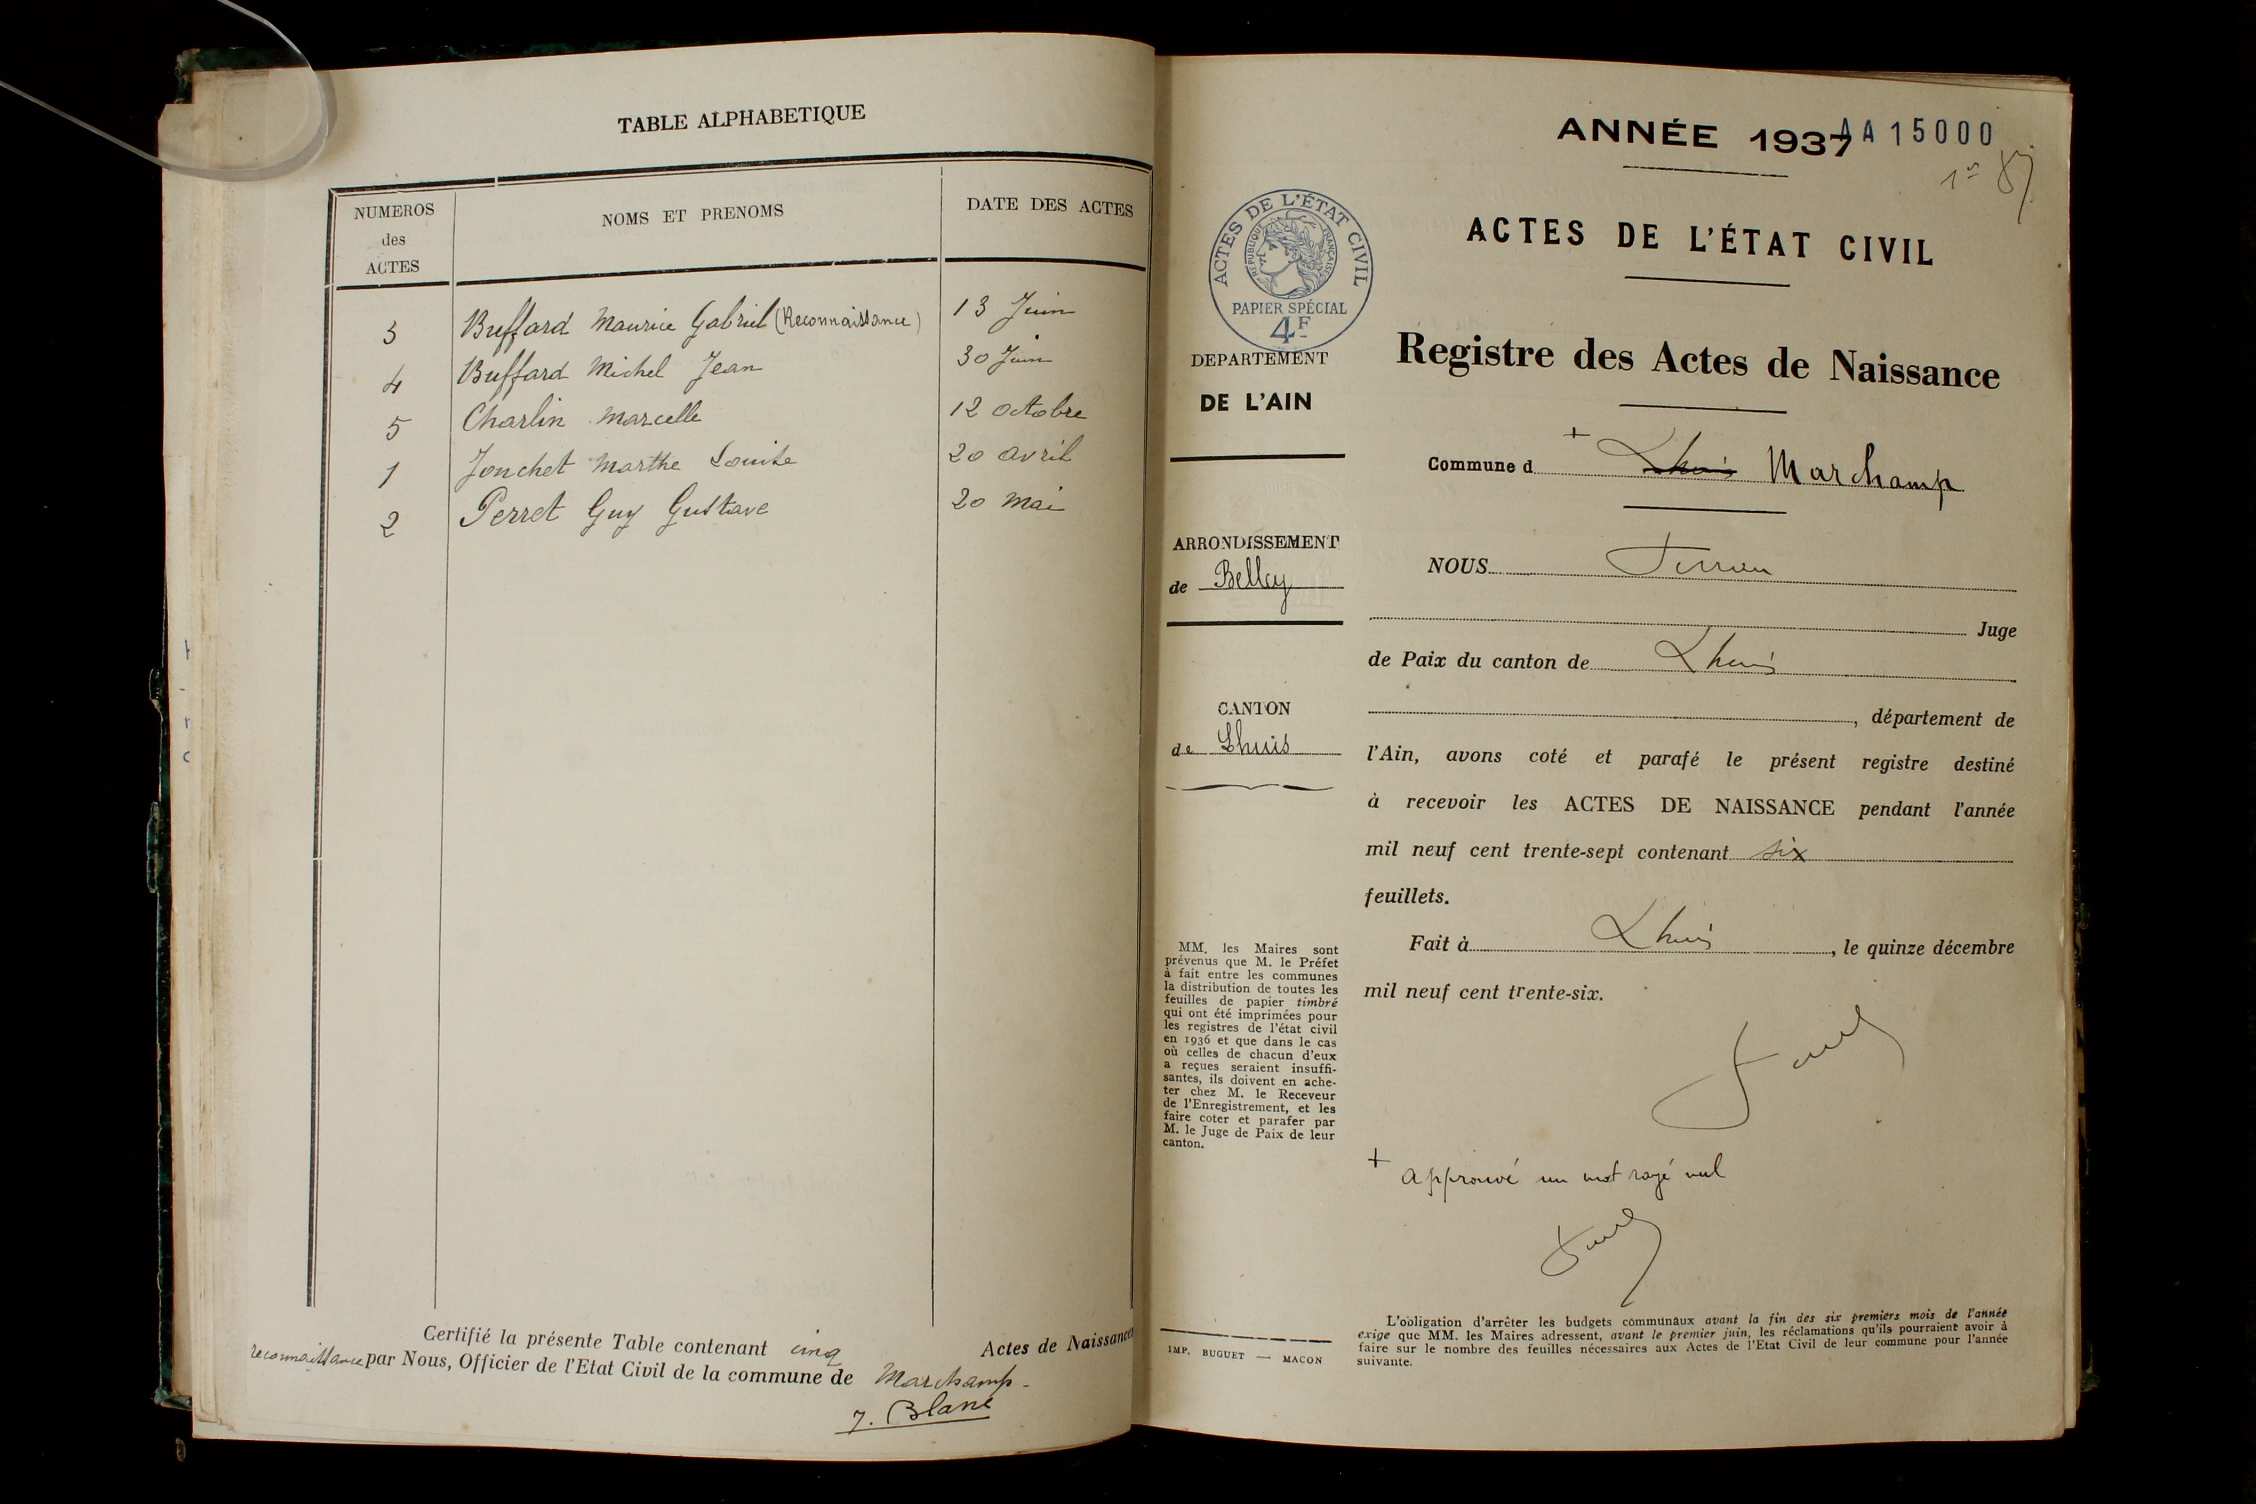 TABLE ALPHABETIQUE
NUMEROS
des
ACTES
NOMS ET PRENOMS
DATE DES ACTES
3 Buffard Maurice Gabriel (Reconnaissance) 13 Juin
4 Buffard Michel Jean 30 Juin
5 Charlin Marcelle 12 octobre
1 Jonchet Marthe Louise 20 avril
2 Perret Guy Gustave 20 mai
Certifié la présente Table contenant cinq Actes de Naissances
reconnaissance par Nous, Officier de l'Etat Civil de la commune de Marchamp-
J. Blanc
ANNÉE 1937
AA15000
ACTES DE L'ÉTAT CIVIL
RÉPUBLIQUE FRANÇAISE
PAPIER SPÉCIAL
4F
DEPARTEMENT
DE L'AIN
ARRONDISSEMENT
de Belley
CANTON
de Lhuis
MM. les Maires sont
prévenus que M. le Préfet
à fait entre les communes
la distribution de toutes les
feuilles de papier timbré
qui ont été imprimées pour
les registres de l'état civil
en 1936 et que dans le cas
où celles de chacun d'eux
a reçues seraient insuffi-
santes, ils doivent en ache-
ter chez M. le Receveur
de l'Enregistrement, et les
faire coter et parafer par
M. le Juge de Paix de leur
canton.
IMP. BUGUET — MACON
ACTES DE L'ÉTAT CIVIL
Registre des Actes de Naissance
Commune d + Lhuis Marchamp
NOUS
Juge
de Paix du canton de Lhuis
, département de
l'Ain, avons coté et parafé le présent registre destiné
à recevoir les ACTES DE NAISSANCE pendant l'année
mil neuf cent trente-sept contenant six
feuillets.
Fait à Lhuis, le quinze décembre
mil neuf cent trente-six.
+ approuvé un mot rayé nul
L'obligation d'arrêter les budgets communaux avant la fin des six premiers mois de l'année
exige que MM. les Maires adressent, avant le premier juin, les réclamations qu'ils pourraient avoir à
faire sur le nombre des feuilles nécessaires aux Actes de l'Etat Civil de leur commune pour l'année
suivante.